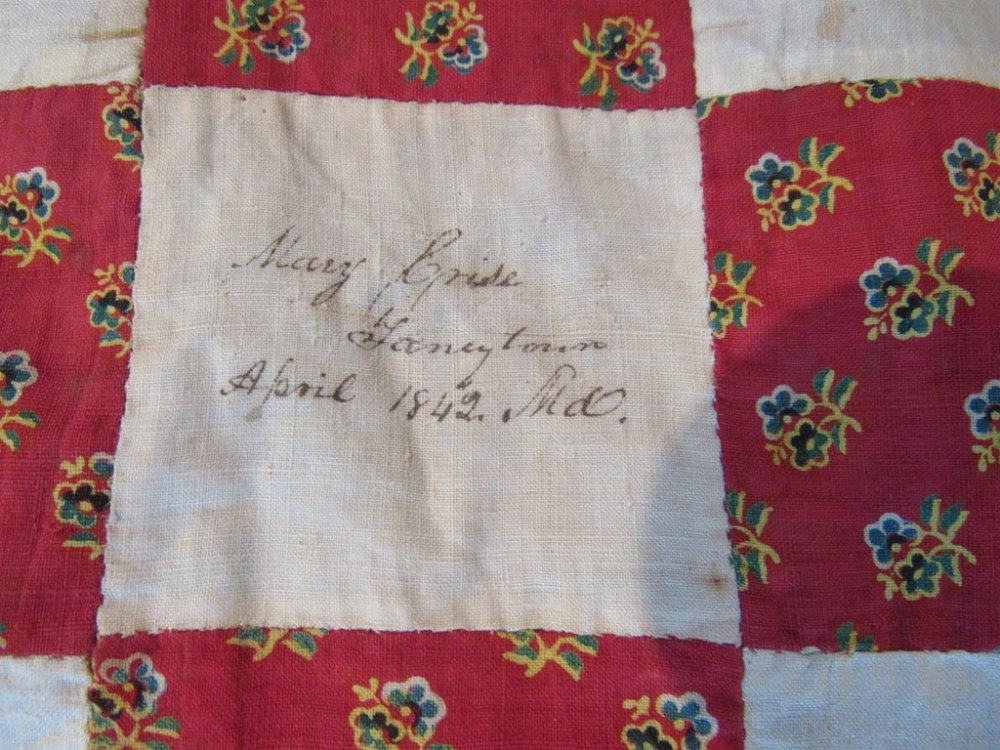 Mary Crise
Taneytown
April 1842. Md.